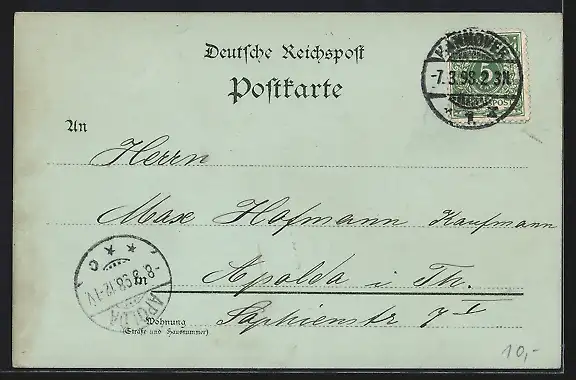 Deutsche Reichspost
Postkarte
HANNOVER
-7.3.98.2-3N.
1.
5
REICHSPOST
An
Herrn
Max Hofmann Kaufmann
in Apolda i. Th.
Wohnung Sophienstr 7 I
(Straße und Hausnummer)
APOLDA
-8.3.98.12-1V.
C
10,-